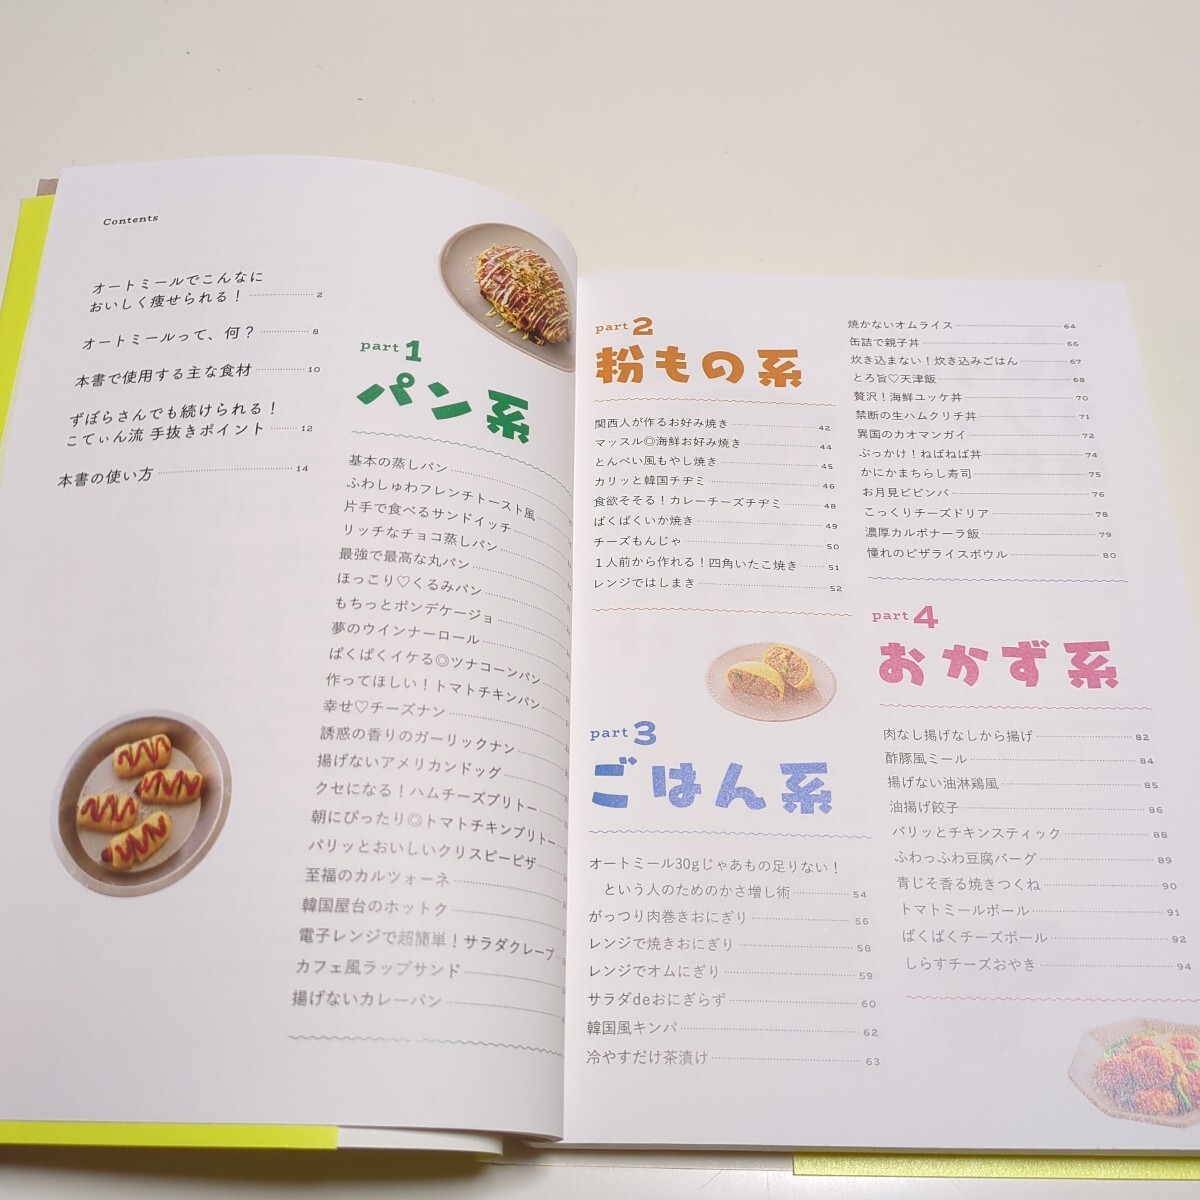 Contents
オートミールでこんなに
おいしく痩せられる！ 2
オートミールって、何？ 8
本書で使用する主な食材 10
ずぼらさんでも続けられる！
こてぃん流 手抜きポイント 12
本書の使い方 14
part 1
パン系
基本の蒸しパン
ふわしゅわフレンチトースト風
片手で食べるサンドイッチ
リッチなチョコ蒸しパン
最強で最高な丸パン
ほっこり♡くるみパン
もちっとポンデケージョ
夢のウインナーロール
ぱくぱくイケる◎ツナコーンパン
作ってほしい！トマトチキンパン
幸せ♡チーズナン
誘惑の香りのガーリックナン
揚げないアメリカンドッグ
クセになる！ハムチーズブリトー
朝にぴったり◎トマトチキンブリトー
パリッとおいしいクリスピーピザ
至福のカルツォーネ
韓国屋台のホットク
電子レンジで超簡単！サラダクレープ
カフェ風ラップサンド
揚げないカレーパン
part 2
粉もの系
関西人が作るお好み焼き 42
マッスル◎海鮮お好み焼き 44
とんぺい風もやし焼き 45
カリッと韓国チヂミ 46
食欲そそる！カレーチーズチヂミ 48
ぱくぱくいか焼き 49
チーズもんじゃ 50
1人前から作れる！四角いたこ焼き 51
レンジではしまき 52
part 3
ごはん系
オートミール30gじゃあもの足りない！
という人のためのかさ増し術 54
がっつり肉巻きおにぎり 56
レンジで焼きおにぎり 58
レンジでオムにぎり 59
サラダdeおにぎらず 60
韓国風キンパ 62
冷やすだけ茶漬け 63
焼かないオムライス 64
缶詰で親子丼 66
炊き込まない！炊き込みごはん 67
とろ旨♡天津飯 68
贅沢！海鮮ユッケ丼 70
禁断の生ハムクリチ丼 71
異国のカオマンガイ 72
ぶっかけ！ねばねば丼 74
かにかまちらし寿司 75
お月見ビビンバ 76
こっくりチーズドリア 78
濃厚カルボナーラ飯 79
憧れのピザライスボウル 80
part 4
おかず系
肉なし揚げなしから揚げ 82
酢豚風ミール 84
揚げない油淋鶏風 85
油揚げ餃子 86
パリッとチキンスティック 88
ふわっふわ豆腐バーグ 89
青じそ香る焼きつくね 90
トマトミールボール 91
ぱくぱくチーズボール 92
しらすチーズおやき 94